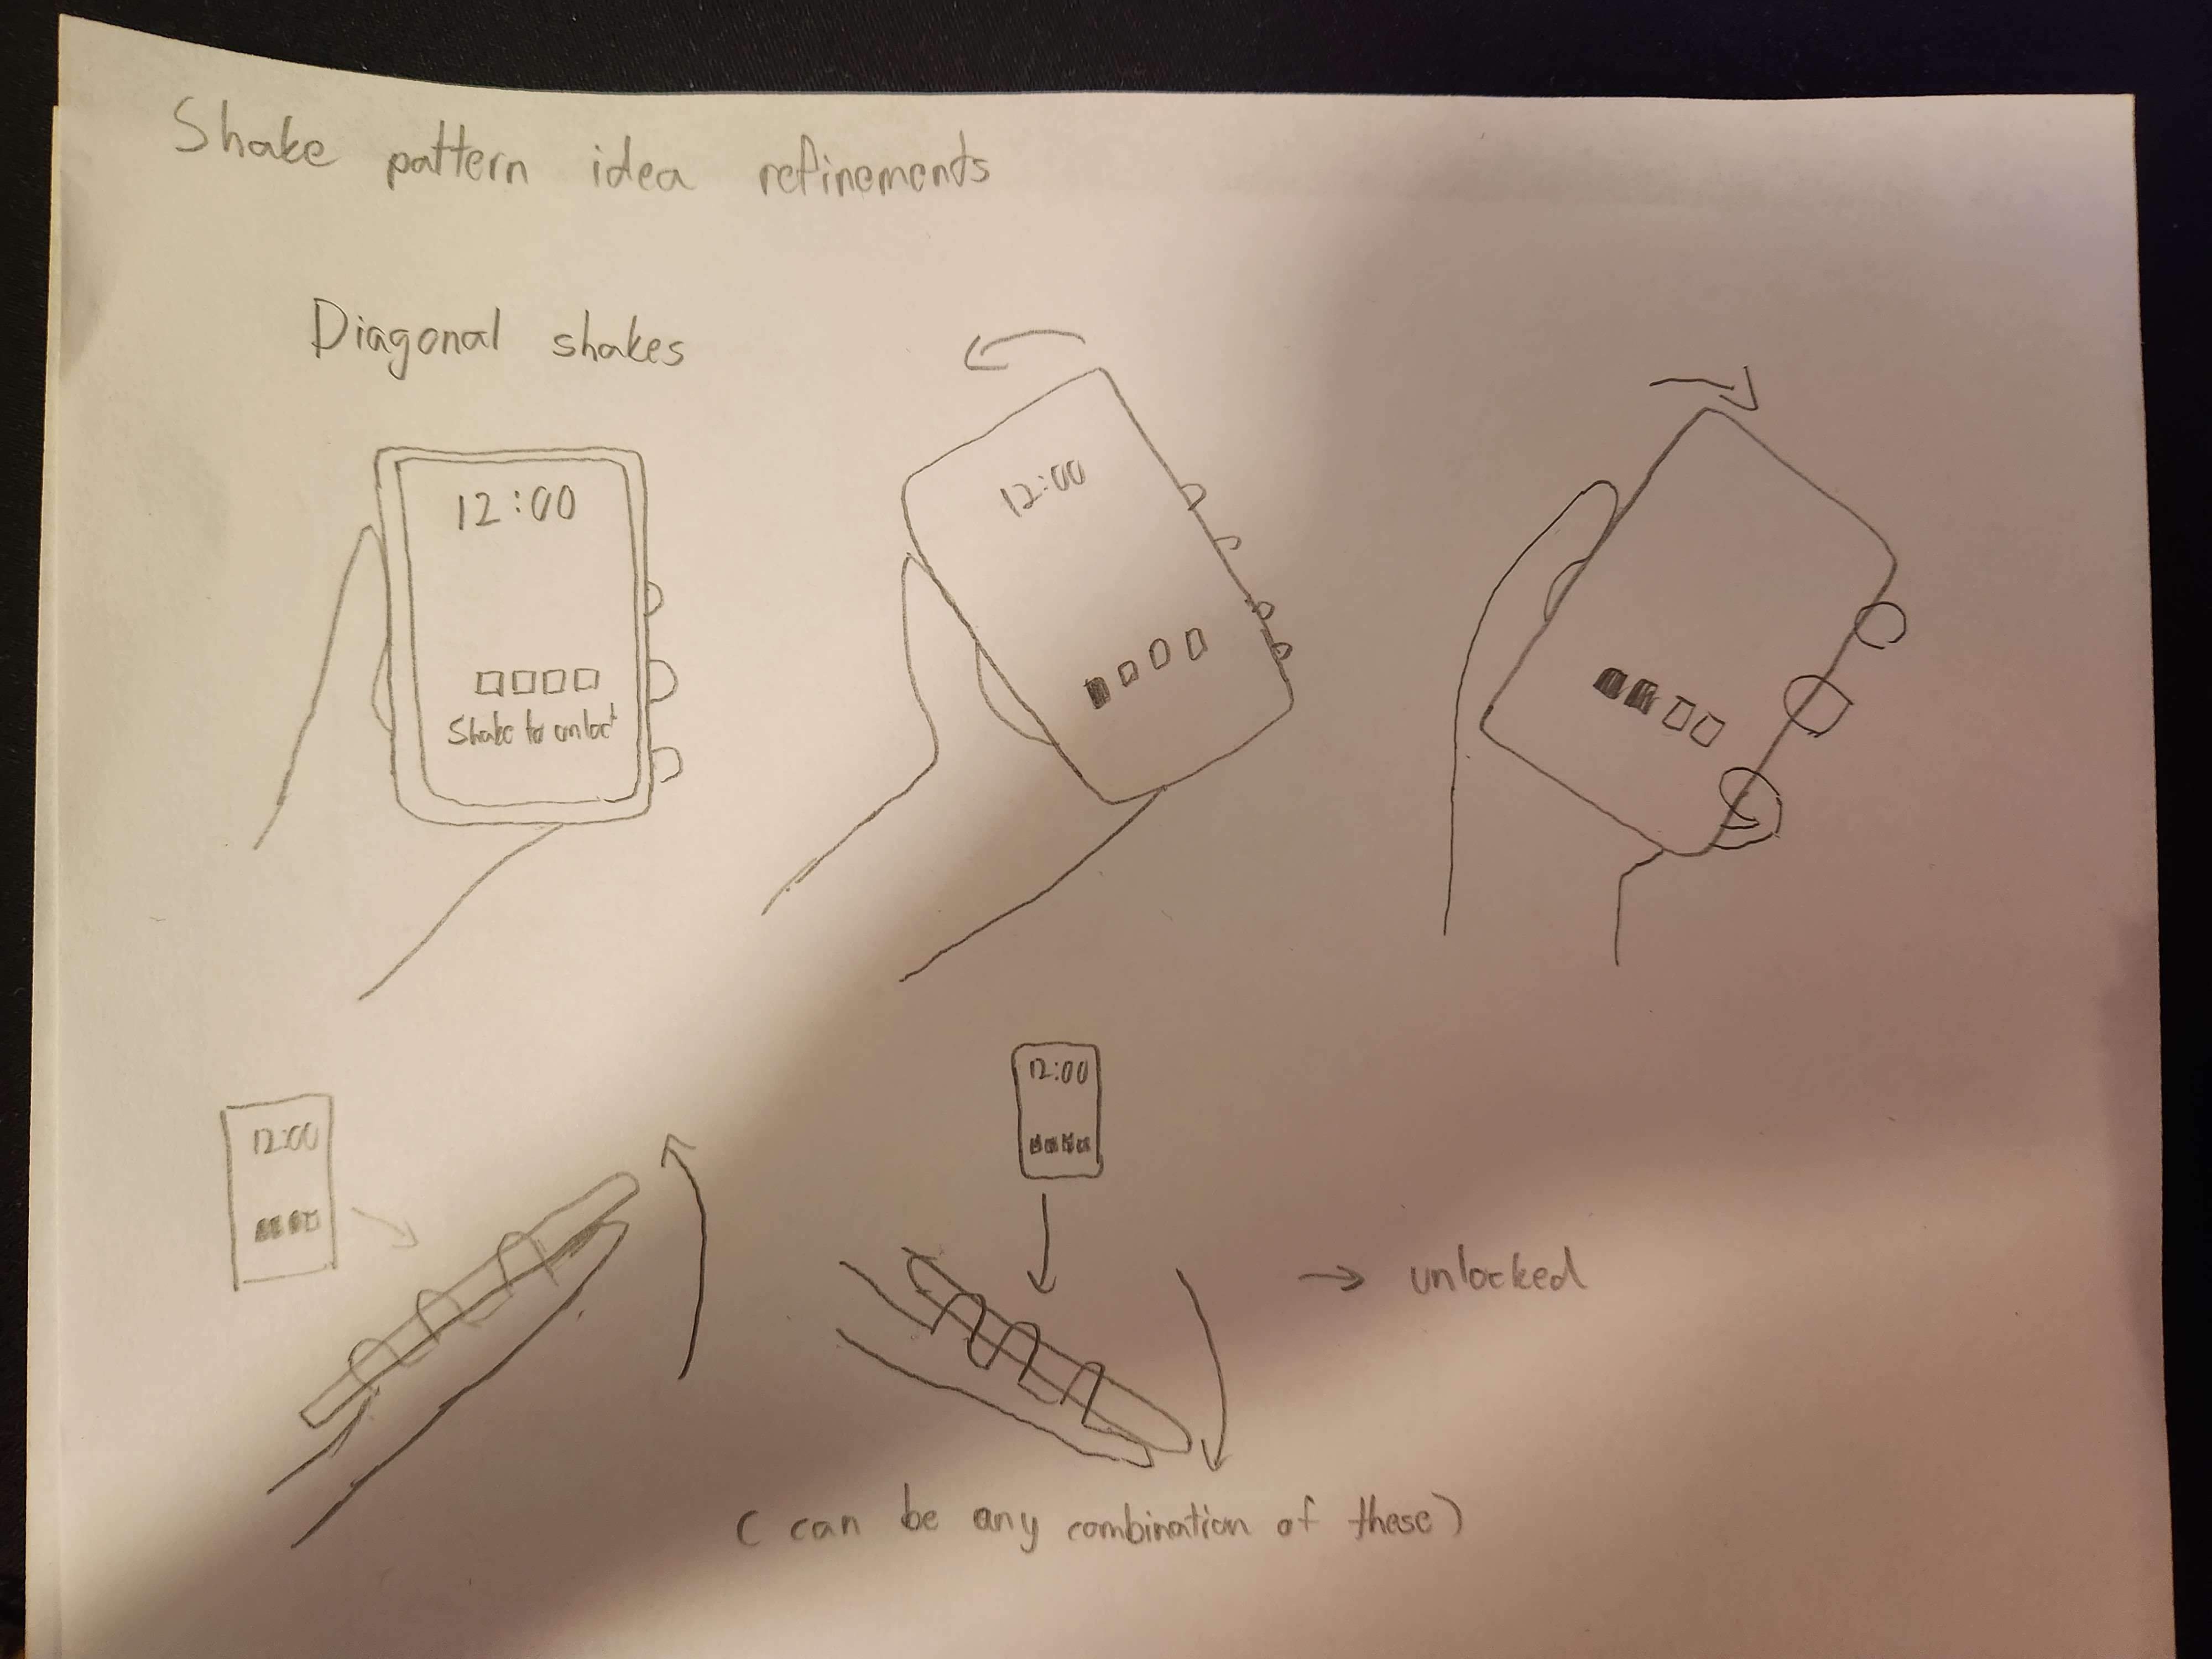 Shake pattern idea refinements
Diagonal shakes
12:00
Shake to unloct
12:00
12:00
12:00
→ unlocked
(can be any combination of these)